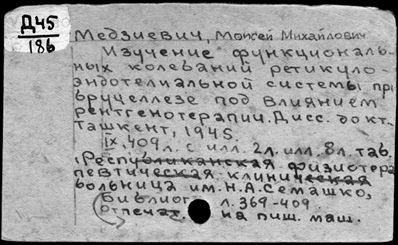 Д45
186
Медзиевич, Моисей Михайлович
Изучение функциональ-
ных колебаний ретикуло-
эндотелиальной системы при
бруцеллезе под влиянием
рентгенотерапии. Дисс. докт.
Ташкент, 1945.
IX, 409 л. с илл. 2 л. илл. 8 л. таб.
(Республиканская физиотера
певтическая клиническая
больница им. Н.А. Семашко,
Библиог л. 369-409.
Отпечат. на пиш. маш.